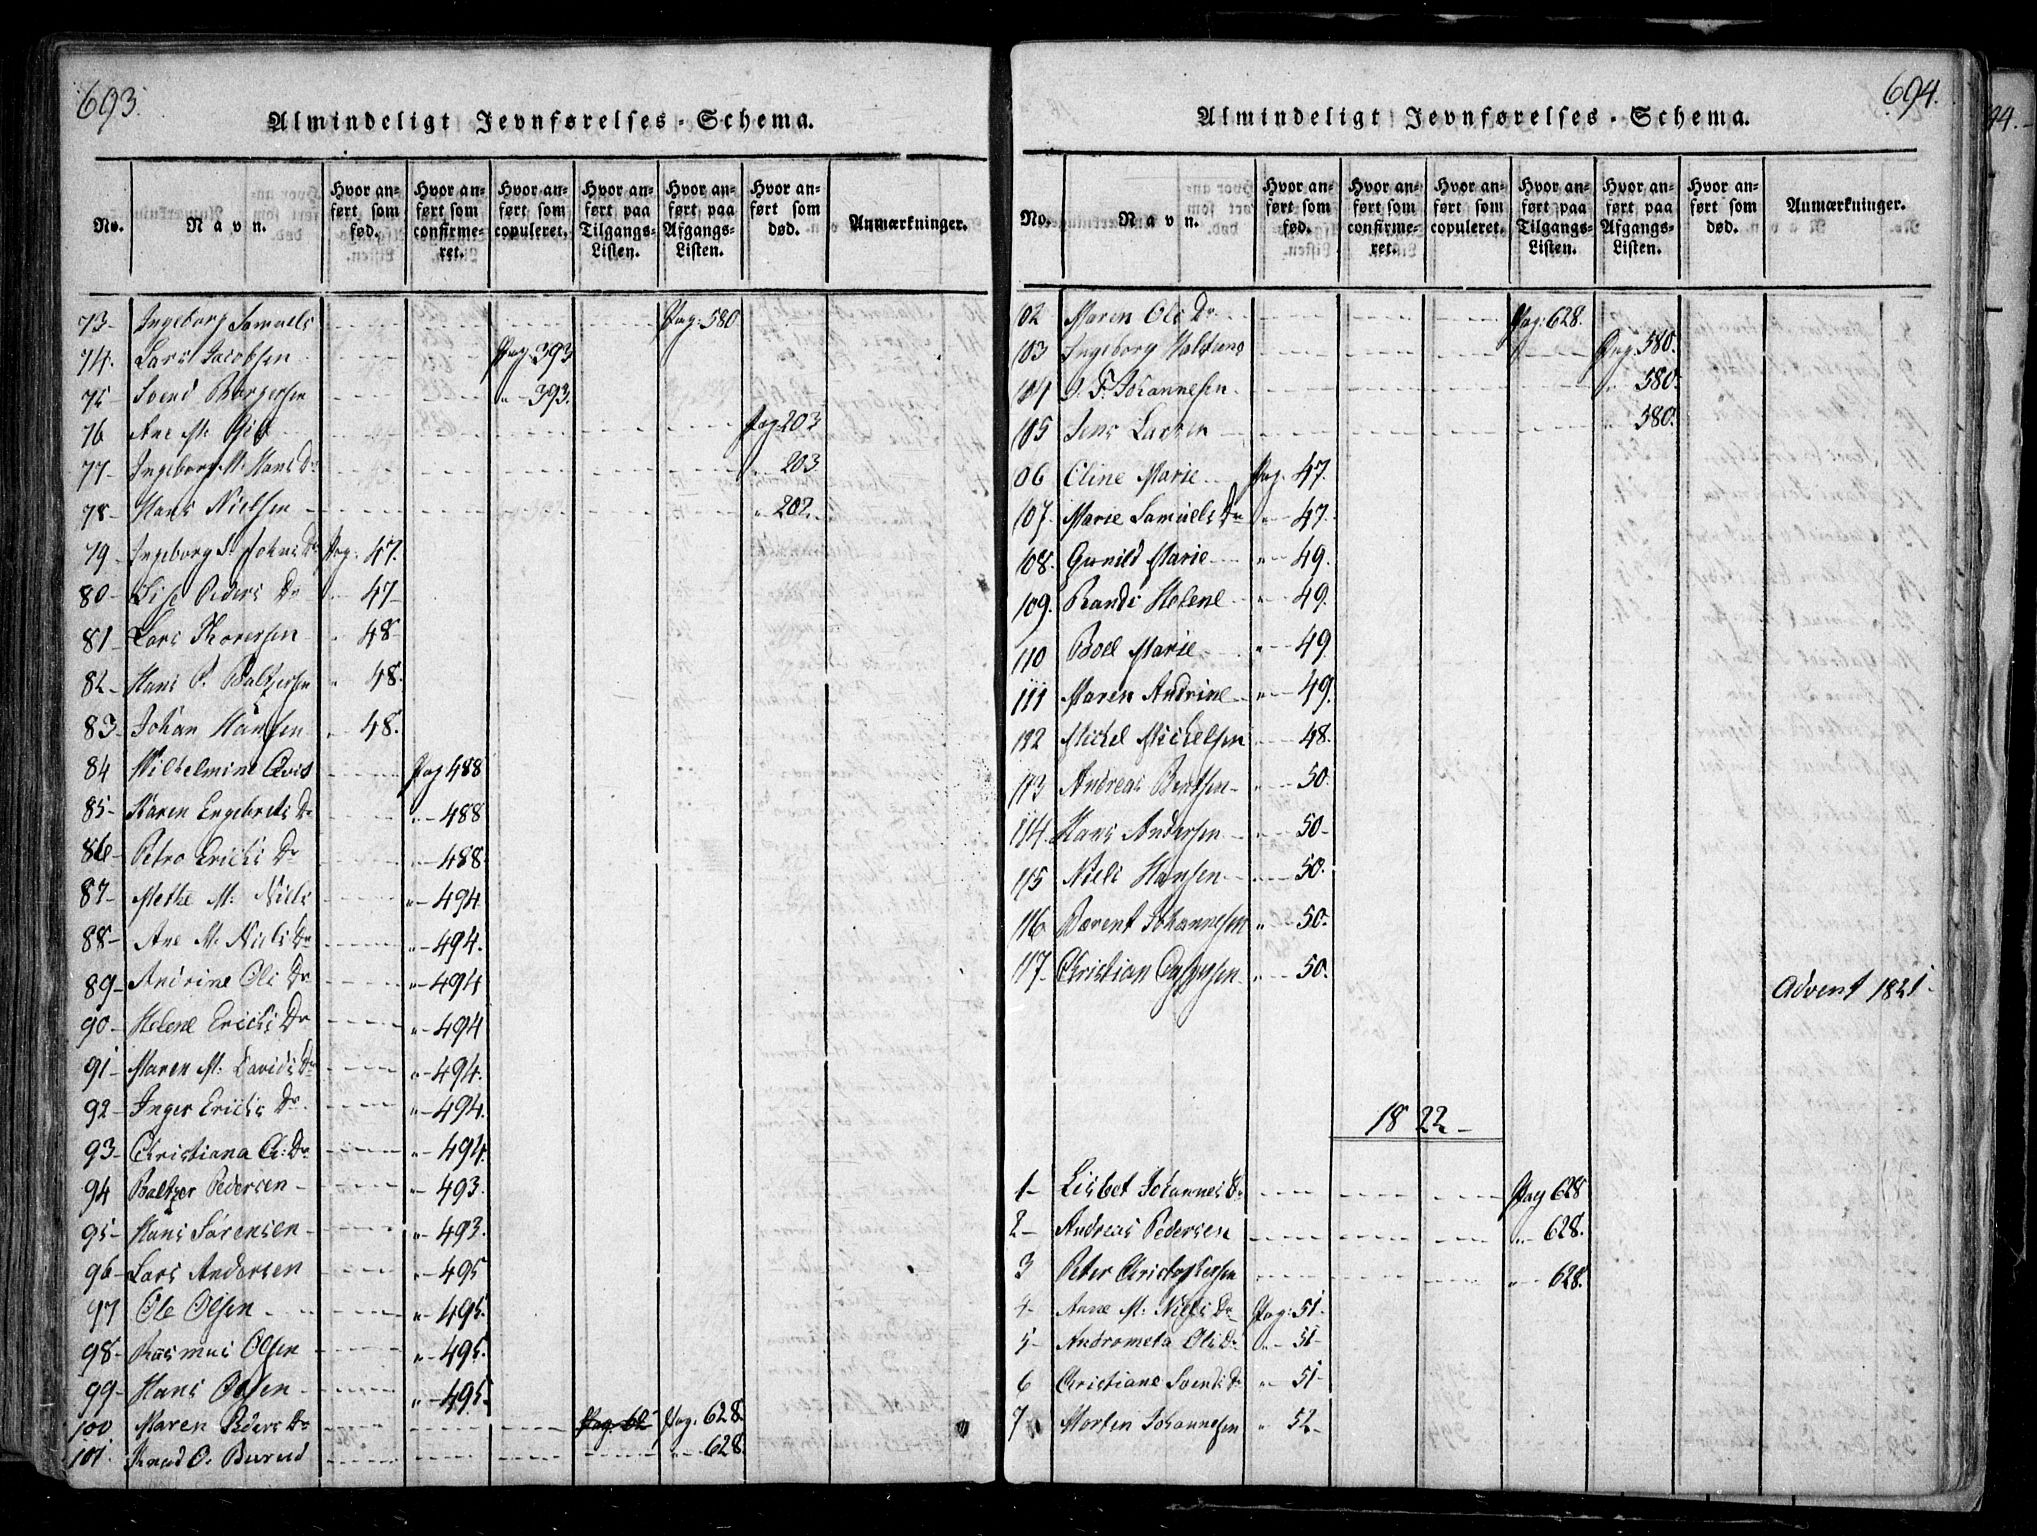 693.
Almindeligt Jevnførelses-Schema.
No. Navn. Hvor anført som fød. Hvor anført som confirmeret. Hvor anført som copuleret. Hvor anført paa Tilgangs-Listen. Hvor anført paa Afgangs-Listen. Hvor anført som død. Anmærkninger.
73- Ingeborg Samuels Pag: 580
74. Lars Jacobsen Pag. 393
75 Svend Borgersen „ 393.
76 Ane M. Pag 203
77- Ingeborg M. Hans Dr „ 203
78- Hans Nielsen „ 202.
79- Ingeborg S. Johns Dr Pag: 47.
80- Lise Peders Dr 47-
81- Lars Thoresen „ 48-
82- Hans P. Baltzersen „ 48.
83- Johan Hansen „ 48.
84 Wilhelmine Pag 488
85- Karen Engebrets Dr „ 488
86- Petro Erichs Dr „ 488
87- Methe M. Niels „ 494
88- Ane M. Niels Dr „ 494.
89- Andrine Ols Dr „ 494
90- Helene Erichs Dr „ 494
91- Maren M. Davids Dr „ 494.
92- Inger Erichs Dr „ 494.
93- Christiana C: Dr „ 494.
94 Baltzer Pedersen „ 493.
95- Hans Sørensen „ 493.
96- Lars Andersen „ 495
97 Ole Olsen „ 495.
98- Rasmus Olsen „ 495.
99- Hans Olsen „ 495.
100 Maren Peders Dr Pag. 62 Pag. 628.
101. Knud O. Burud „ 628.
694.
Almindeligt Jevnførelses-Schema.
No. Navn. Hvor anført som fød. Hvor anført som confirmeret. Hvor anført som copuleret. Hvor anført paa Tilgangs-Listen. Hvor anført paa Afgangs-Listen. Hvor anført som død. Anmærkninger.
102 Maren Ols Dr Pag: 628.
103 Ingeborg Pag. 580.
104 Johannesen „ 580.
105 Jens Larsen „ 580.
106 Cline Marie Pag. 47.
107. Marie Samuels Dr „ 47.
108. Gunild Marie „ 49.
109. Randi Helene „ 49.
110 Boel Marie „ 49
111 Maren Andrine „ 49.
112 Michel Michelsen 48.
113 Andreas Bentsen „ 50.
114. Hans Andersen „ 50-
115 Niels Hansen 50.
116 Bærent Johannesen „ 50.
117. Christian Caspersen „ 50.
Advent 1821.
1822-
1- Lisbet Johannes Dr Pag 628
2- Andreas Pedersen „ 628.
3 Peter Christophersen „ 628.
4- Anne M. Niels Dr Pag: 51-
5- Andrometa Ols Dr „ 51-
6 Christiane Svends Dr „ 51-
7 Morten Johannesen „ 52-